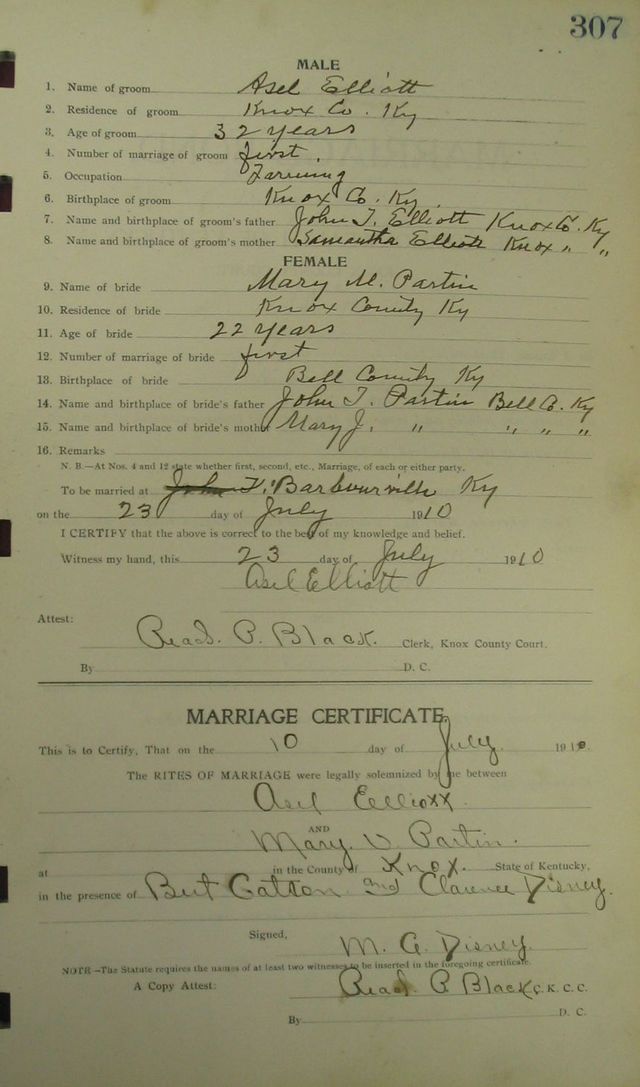 307
MALE
1. Name of groom Asel Elliott
2. Residence of groom Knox Co. Ky
3. Age of groom 32 years
4. Number of marriage of groom first.
5. Occupation Farming
6. Birthplace of groom Knox Co. Ky.
7. Name and birthplace of groom's father John T. Elliott Knox Co. Ky
8. Name and birthplace of groom's mother Samantha Elliott Knox " "
FEMALE
9. Name of bride Mary M. Partin
10. Residence of bride Knox County Ky
11. Age of bride 22 years
12. Number of marriage of bride first
13. Birthplace of bride Bell County Ky
14. Name and birthplace of bride's father John T. Partin Bell Co. Ky
15. Name and birthplace of bride's mother Mary J. " " " "
16. Remarks
N. B.—At Nos. 4 and 12 state whether first, second, etc., Marriage, of each or either party.
To be married at Barbourville Ky
on the 23 day of July 1910
I CERTIFY that the above is correct to the best of my knowledge and belief.
Witness my hand, this 23 day of July 1910
Asel Elliott
Attest:
Read. P. Black. Clerk, Knox County Court.
By D. C.
MARRIAGE CERTIFICATE
This is to Certify, That on the 10 day of July. 1910.
The RITES OF MARRIAGE were legally solemnized by me between
Asil Ellioxx
AND
Mary V Partin.
at in the County of Knox. State of Kentucky,
in the presence of Burt Catton and Clarence Disney.
Signed, M. G. Disney.
NOTE—The Statute requires the names of at least two witnesses to be inserted in the foregoing certificate.
A Copy Attest: Read P Black C. K. C. C.
By D. C.